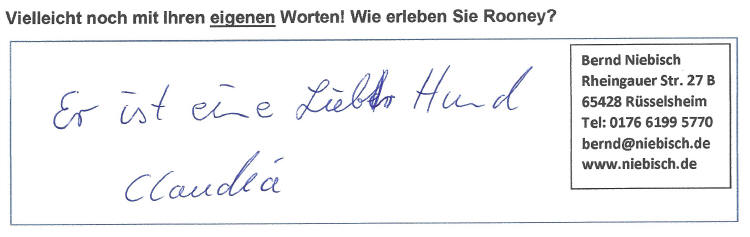 Vielleicht noch mit Ihren eigenen Worten! Wie erleben Sie Rooney?
Er ist eine Lieber Hund
Claudia
Bernd Niebisch
Rheingauer Str. 27 B
65428 Rüsselsheim
Tel: 0176 6199 5770
bernd@niebisch.de
www.niebisch.de